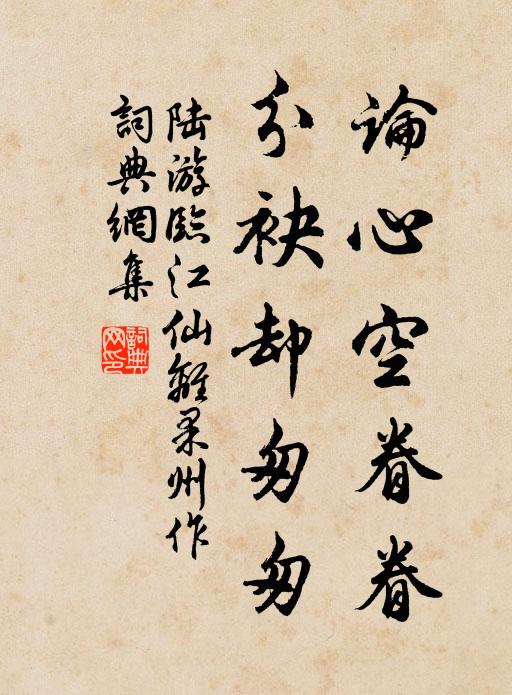 論心空眷眷
分袂却匆匆
陆游臨江仙離果州作
詞典網集
詞典網印